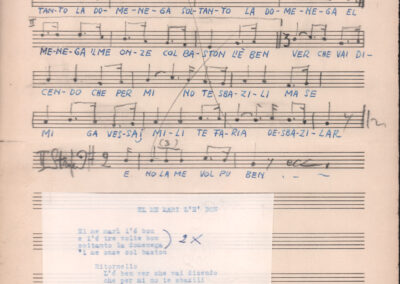 TAN-TO LA DO-ME-NE-GA SOL-TAN-TO LA DO-ME-NE-GA EL
II
ME-NE-GA 'LME ON-ZE COL BA-STON L'È BEN VER CHE VAI DI-
3
CEN-DO CHE PER MI NO TE SBA-ZI-LI MA SE
MI GA VES-SAJ MI-LI TE FA-RIA DE-SBA-ZI-LAR
(3)
2
E NO LA ME VOL PU BEN
EL ME MARI L'E' BON
El me marì l'è bon
e l'è tre volte bon
soltanto la domenega
'l me onze col baston
2X
Ritornello
L'è ben ver che vai disendo
che per mi no te sbazili